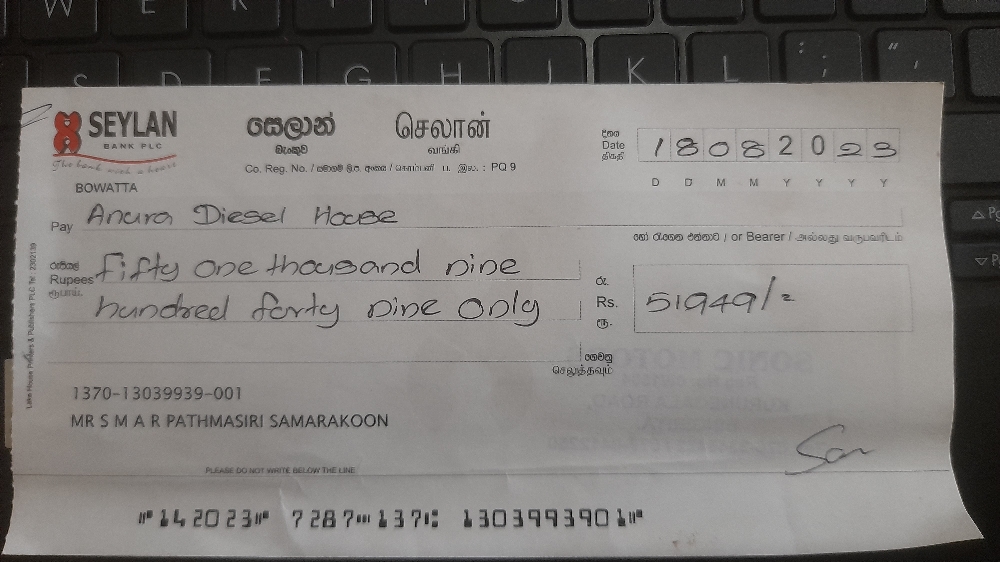 SEYLAN
BANK PLC
The bank with a heart
සෙලාන්
බැංකුව
செலான்
வங்கி
Co. Reg. No. / සමාගම් ලි.ප. අංකය / கொம்பனி ப. இல. : PQ 9
දිනය
Date
திகதி
1 8 0 8 2 0 2 3
D D M M Y Y Y Y
BOWATTA
Pay Anura Diesel House
හෝ රැගෙන එන්නාට / or Bearer / அல்லது வருபவரிடம்
රුපියල්
Rupees fifty one thousand nine
ரூபாய்
hundred forty nine only
රු.
Rs. 51949/=
ரூ.
ගෙවනු
செலுத்தவும்
1370-13039939-001
MR S M A R PATHMASIRI SAMARAKOON
PLEASE DO NOT WRITE BELOW THE LINE
⑈142023⑈ 7287⑉137⑆ 1303993901⑈